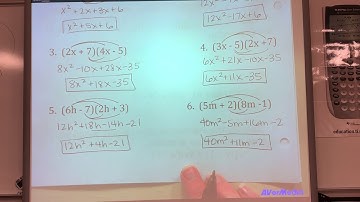 x² + 2x + 3x + 6
x² + 5x + 6
12x² - 17x + 6
3. (2x + 7)(4x - 5)
8x² - 10x + 28x - 35
8x² + 18x - 35
4. (3x - 5)(2x + 7)
6x² + 21x - 10x - 35
6x² + 11x - 35
5. (6h - 7)(2h + 3)
12h² + 18h - 14h - 21
12h² + 4h - 21
6. (5m + 2)(8m - 1)
40m² - 5m + 16m - 2
40m² + 11m - 2